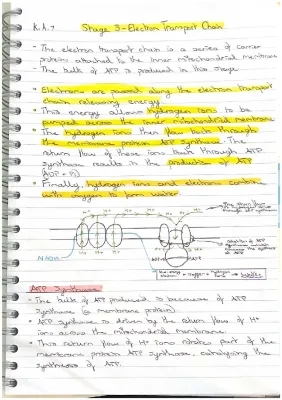 K.A.7
Stage 3 - Electron Transport Chain
- The electron transport chain is a series of carrier
proteins attached to the inner mitochondrial membrane
- The bulk of ATP is produced in this stage
- Electrons are passed along the electron transport
chain releasing energy
- This energy allows hydrogen ions to be
pumped across the inner mitochondrial membrane
- The hydrogen ions then flow back through
the membrane protein ATP synthase. The
return flow of these ions back through ATP
synthase results in the production of ATP
(ADP + Pi)
- Finally, hydrogen ions and electrons combine
with oxygen to form water
NADH
ATP Synthase
- The bulk of ATP produced is because of ATP
synthase (a membrane protein)
- ATP synthase is driven by the return flow of H+
ions across the mitochondrial membrane.
- This return flow of H+ ions rotates part of the
membrane protein ATP synthase, catalysing the
synthesis of ATP.